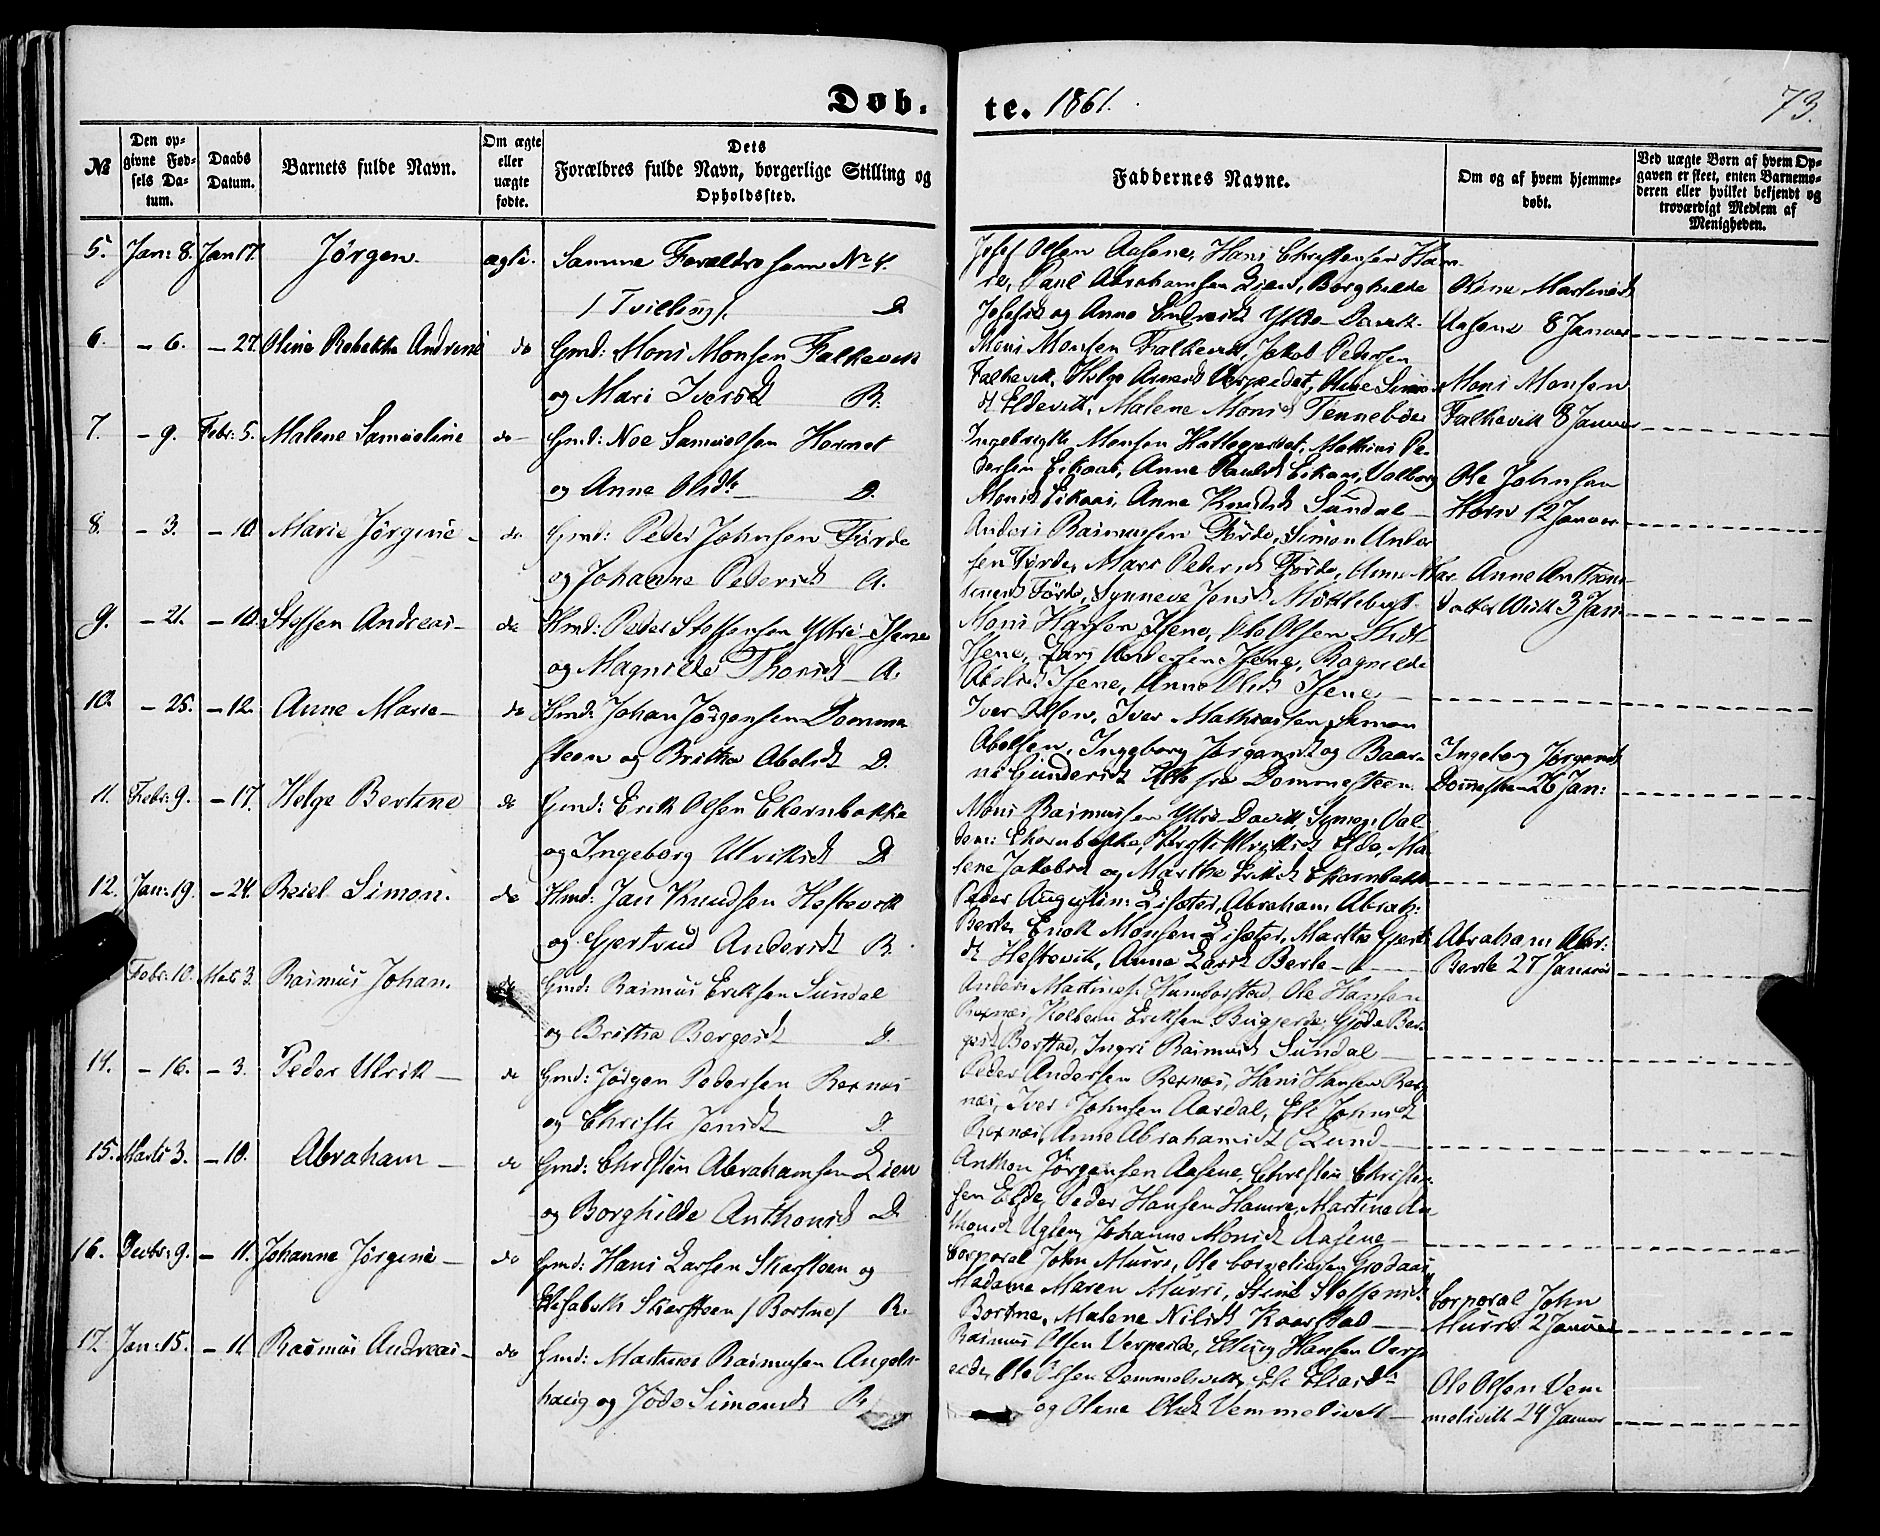 Døb.
te. 1861.
73.
№
Den op-
givne Fød-
sels Da-
tum.
Daabs
Datum.
Barnets fulde Navn.
Om ægte
eller
uægte
fødte.
Dets
Forældres fulde Navn, borgerlige Stilling og
Opholdssted.
Faddernes Navne.
Om og af hvem hjemme-
døbt.
Ved uægte Børn af hvem Op-
gaven er skeet, enten Barnemo-
deren eller hvilket bekjendt og
troværdigt Medlem af
Menigheden.
5. Jan: 8. Jan 17. Jørgen. ægte. Samme Forældre som No 4.
/ Tvilling /. D.
Josef Olsen Aasene, Hans Christensen Ham-
re, Paul Abrahamsen Lien, Borghilde
Josefsdt og Anne Ytre Davik.
Oline Martinsdt
Aasene 8 Januar
6. – 6. – 27. Oline Rebekka Andrine do Gmd: Mons Monsen Falkevik
og Mari Iversdt R.
Mons Monsen Falkevik, Jakob Pedersen
Falkevik, Helge Vespestet, Oline Simo
dt Eldevik, Malene Monsd Tennebøe
Mons Monsen
Falkevik 8 Januar
7. – 9. Febr: 5. Malene Samueline do Gmd: Noe Samuelsen Hornet
og Anne Olsdt D.
Ingebrigt Monsen Hattegjerdet, Mathias Pe-
dersen Eikaas, Anne Paulsdt Eikaas, Valborg
Monsdt Eikaas, Anne Knudsdt Sundal
Ole Johnsen
Horn 12 Januar
8. – 3. – 10. Marie Jørgine do Gmd: Peder Johnsen Førde
og Johanne Pedersdt A.
Anders Rasmussen Førde, Simon Ander
sen Førde, Mari Pedersdt Førde, Anne Mar
Førde, Synneve Jensdt Myklebust
Anne Anthoni
datter Wiik 3 Jan:
9. – 21. – 10. Steffen Andreas do Hmd: Peder Steffensen Ytre-Isene
og Magnilde Thorsdt A.
Mons Hansen Isene, Ole Olsen Midt
Isene, Lars Andersen Isene, Ragnilde
Abelsdt Isene, Anne Olsdt Isene
10. – 25. – 12. Anne Marie do Hmd: Johan Jørgensen Domme
steen og Britha Abelsdt D.
Iver Olsen, Iver Mathiassen, Simon
Abelsen, Ingeborg Jørgensdt og Baar-
ni Gundersdt Alle fra Dommesteen.
Ingeborg Jørgensdt
Dommesteen 26 Jan:
11. Febr: 9. – 17. Helge Bertine do Gmd: Erik Olsen Ekornbakke
og Ingeborg Ulriksdt D.
Mons Rasmussen Ytre-Davik, Symon Val-
dem: Ekornbakke, Ulriksdt Elde, Ma
lene Jakobsdt og Marthe Eriksdt Ekornbakke
12. Jan: 19. – 24. Reiel Simon. do Hmd: Jan Knudsen Hestevik
og Gjertrud Andersdt R.
Peder Augustin: Lisæter, Abraham Abrah:
Berle, Enok Monsen Lisæter, Marthe Gjert
dt Hestevik, Anne Larsdt Berle
Abraham Abr:
Berle 27 Januar
Febr: 10. Marts 3. Rasmus Johan. do Gmd: Rasmus Eriksen Sundal
og Britha Bergesdt D.
Anders Martines: Humborstad, Ole Hansen
Rexnæs, Kolbein Eriksen Bugjerde, Gjøde Ber-
gesdt Borstad, Ingri Rasmusdt Sundal
14. – 16. – 3. Peder Ulrik do Gmd: Jørgen Pedersen Rexnæs
og Christi Jensdt D.
Peder Andersen Rexnæs, Hans Hansen Rex
næs, Iver Johnsen Aardal, Eli Johnsdt
Rexnæs, Anne Abrahamsdt Lund
15. Marts 3. – 10. Abraham do Gmd: Christen Abrahamsen Lien
og Borghilde Anthonsdt D.
Anthon Jørgensen Aasene, Christen Christen-
sen Elde, Peder Hansen Hamre, Martine An
thonsdt Uglen, Johanne Monsdt Aasene
16. Decbr: 9. – 11. Johanne Jørgine do Gmd: Hans Larsen Skarsteen og
Elisabeth Skarsteen / Bortne / R.
Corporal John Murri, Ole Cornelinsen Grodaas
Madame Maren Murri, Stine Steffensdt
Bortne, Malene Nilsdt Kaarstad
Corporal John
Murri 2 Januar
17. Jan: 15. – 11. Rasmus Andreas do Gmd: Mathias Rasmussen Angels-
haug og Jøde Simonsdt R.
Rasmus Olsen Verpeide, Elling Hansen Verp
eide, Ole Olsen Vemmelsvik, Eli Eliasdt
og Oline Olsdt Vemmelsvik
Ole Olsen Vem
melsvik 24 Januar